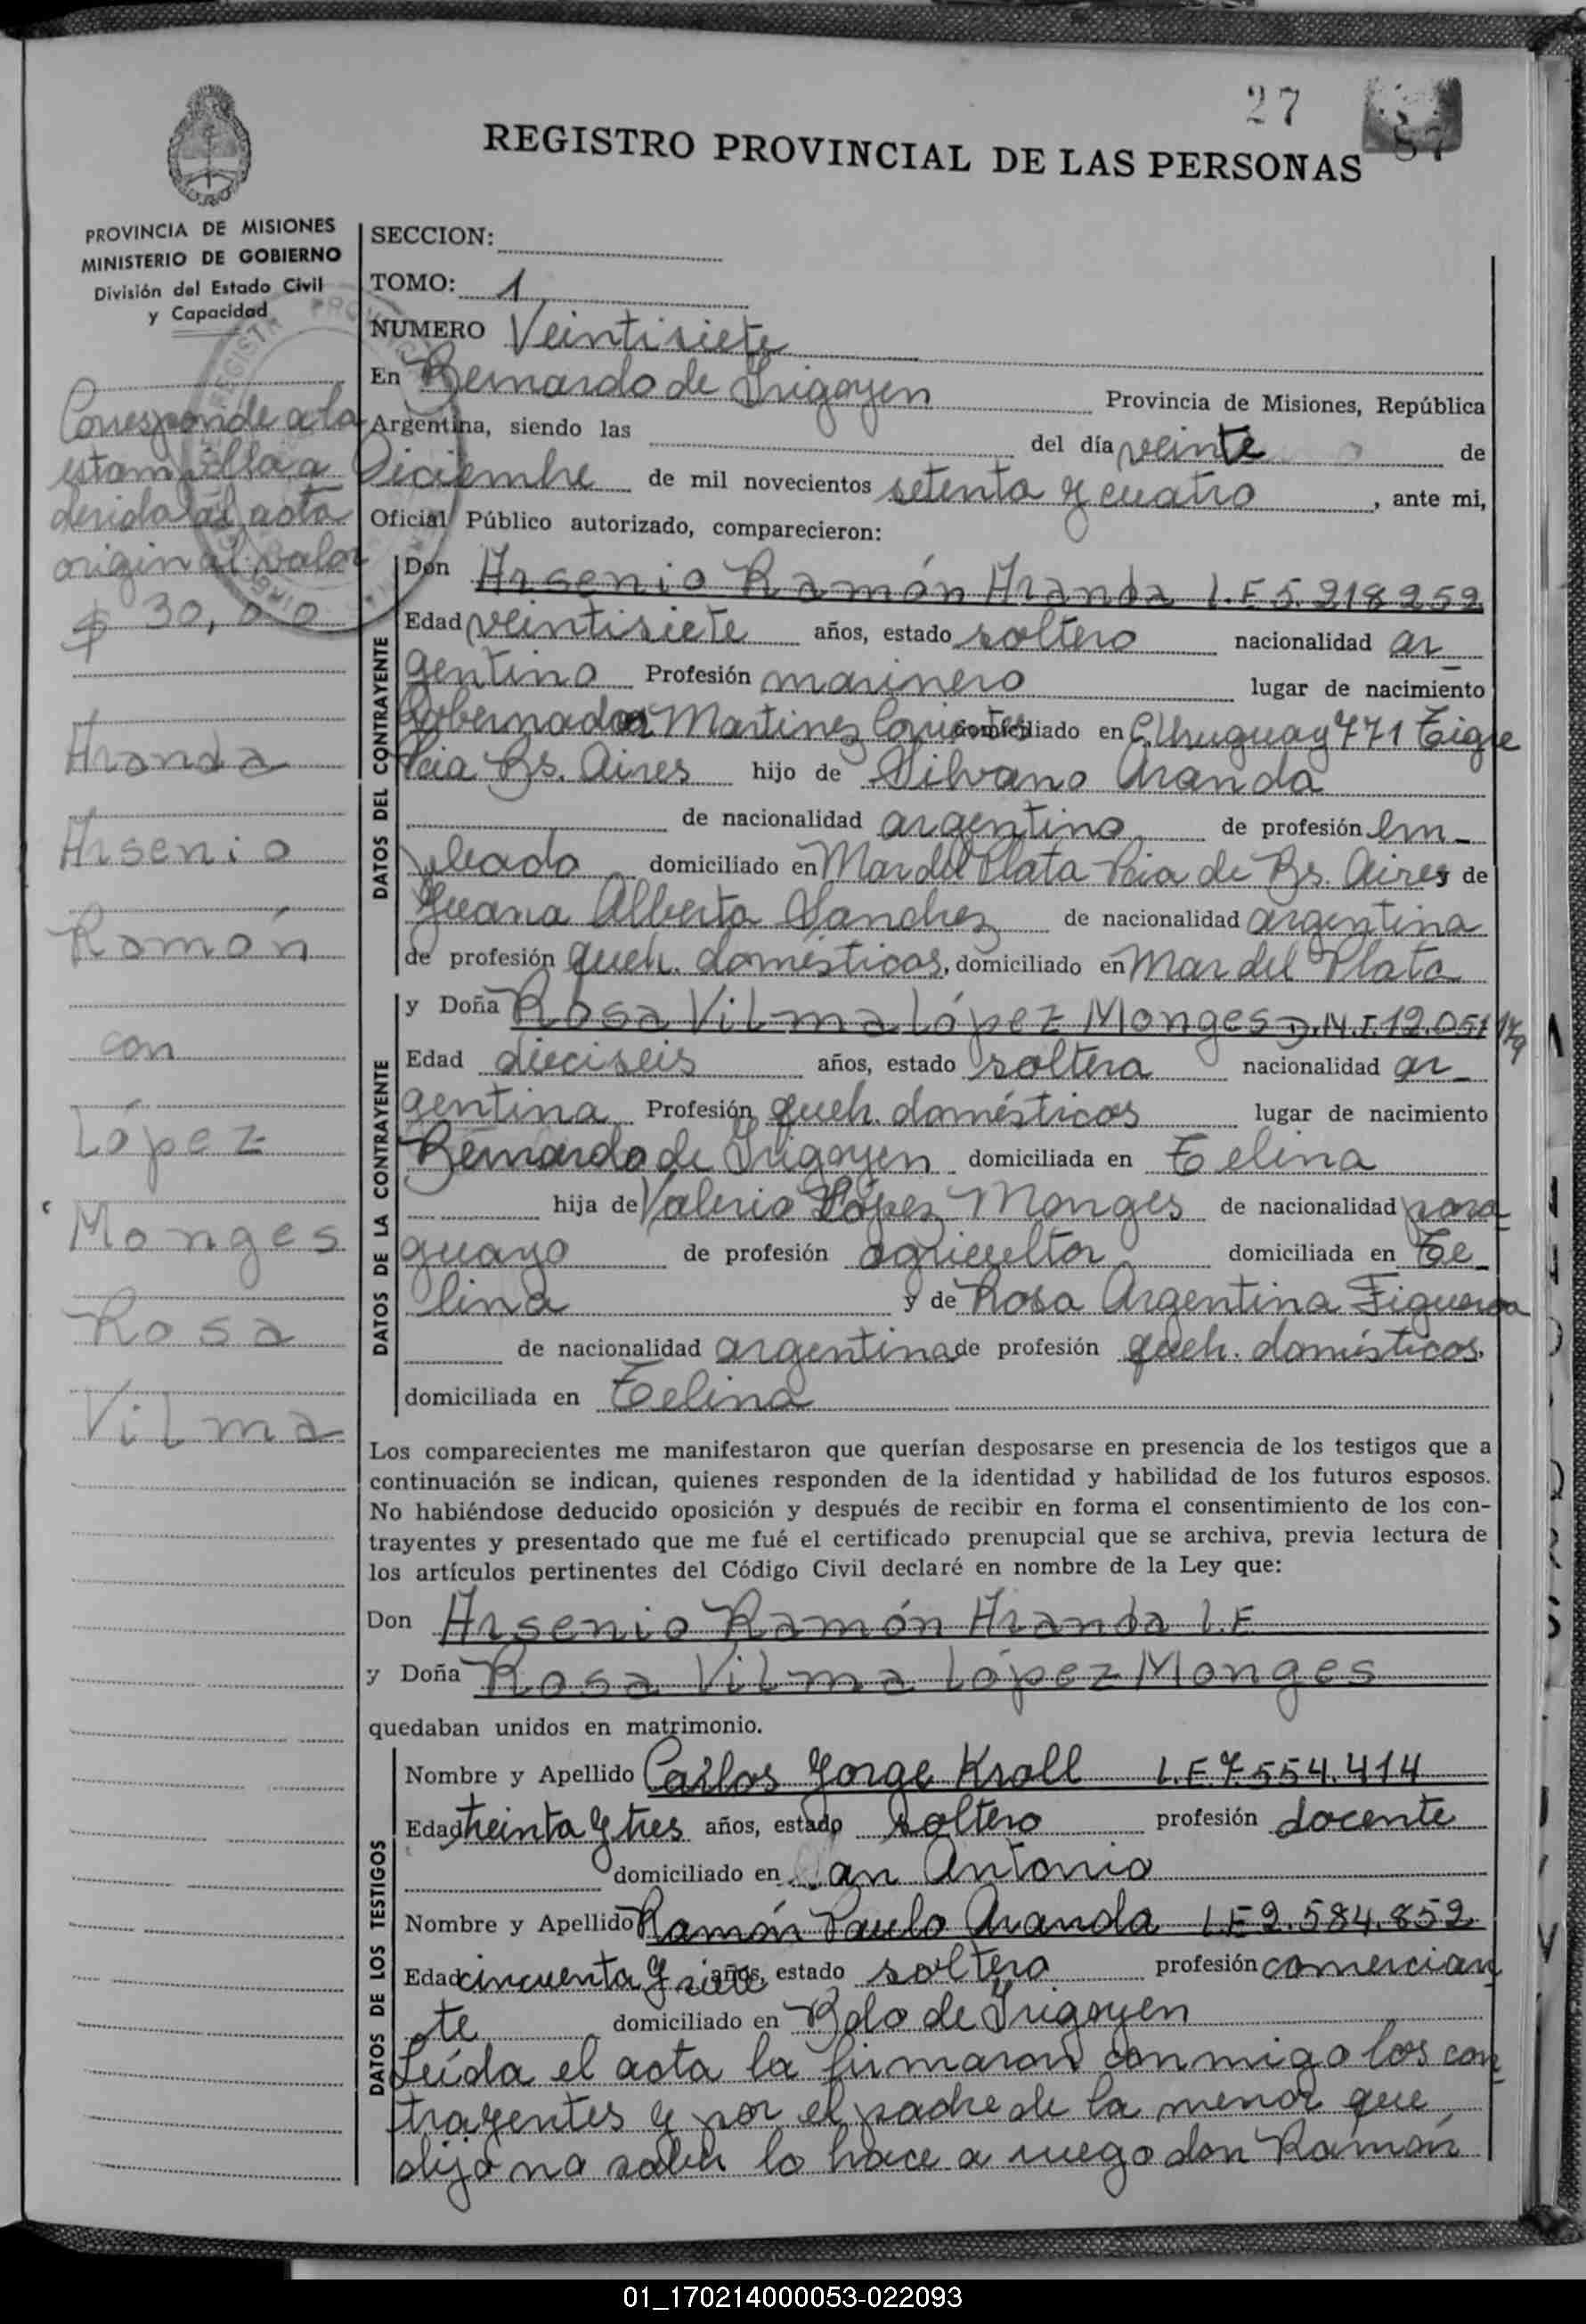 27
87
REGISTRO PROVINCIAL DE LAS PERSONAS
PROVINCIA DE MISIONES
MINISTERIO DE GOBIERNO
División del Estado Civil
y Capacidad
Corresponde a la
estampilla a
derida al acta
original valor
$ 30,00
Aranda
Arsenio
Ramón
con
López
Monges
Rosa
Vilma
SECCION:
TOMO: 1
NUMERO Veintisiete
En Bernardo de Irigoyen Provincia de Misiones, República
Argentina, siendo las del día veinte de
Diciembre de mil novecientos setenta y cuatro, ante mi,
Oficial Público autorizado, comparecieron:
DATOS DEL CONTRAYENTE
Don Arsenio Ramón Aranda L.E 5.218259
Edad veintisiete años, estado soltero nacionalidad ar
gentino Profesión marinero lugar de nacimiento
Gobernador Martinez Corrientes domiciliado en C. Uruguay 771 Tigre
Pcia Bs. Aires hijo de Silvano Aranda
de nacionalidad argentino de profesión em-
pleado domiciliado en Mar del Plata Pcia de Bs. Aires y de
Juana Alberta Sanchez de nacionalidad argentina
de profesión queh. domésticos, domiciliado en Mar del Plata
DATOS DE LA CONTRAYENTE
y Doña Rosa Vilma López Monges D.N.I. 12.051 179
Edad dieciseis años, estado soltera nacionalidad ar-
gentina Profesión queh. domésticos lugar de nacimiento
Bernardo de Irigoyen domiciliada en Celina
hija de Valerio López Monges de nacionalidad para
guayo de profesión agricultor domiciliada en Ce-
lina y de Rosa Argentina Figueroa
de nacionalidad argentina de profesión queh. domésticos,
domiciliada en Celina
Los comparecientes me manifestaron que querían desposarse en presencia de los testigos que a
continuación se indican, quienes responden de la identidad y habilidad de los futuros esposos.
No habiéndose deducido oposición y después de recibir en forma el consentimiento de los con-
trayentes y presentado que me fué el certificado prenupcial que se archiva, previa lectura de
los artículos pertinentes del Código Civil declaré en nombre de la Ley que:
Don Arsenio Ramón Aranda L.E
y Doña Rosa Vilma López Monges
quedaban unidos en matrimonio.
DATOS DE LOS TESTIGOS
Nombre y Apellido Carlos Jorge Kroll L.E.7.554.414
Edad treinta y tres años, estado soltero profesión docente
domiciliado en San Antonio
Nombre y Apellido Ramón Paulo Aranda L.E 2.584.852
Edad cincuenta y siete años, estado soltero profesión comercian
te domiciliado en Bdo de Irigoyen
Leída el acta la firmaron conmigo los con
trayentes y por el padre de la menor que
dijo no saber lo hace a ruego don Ramón
01_170214000053-022093